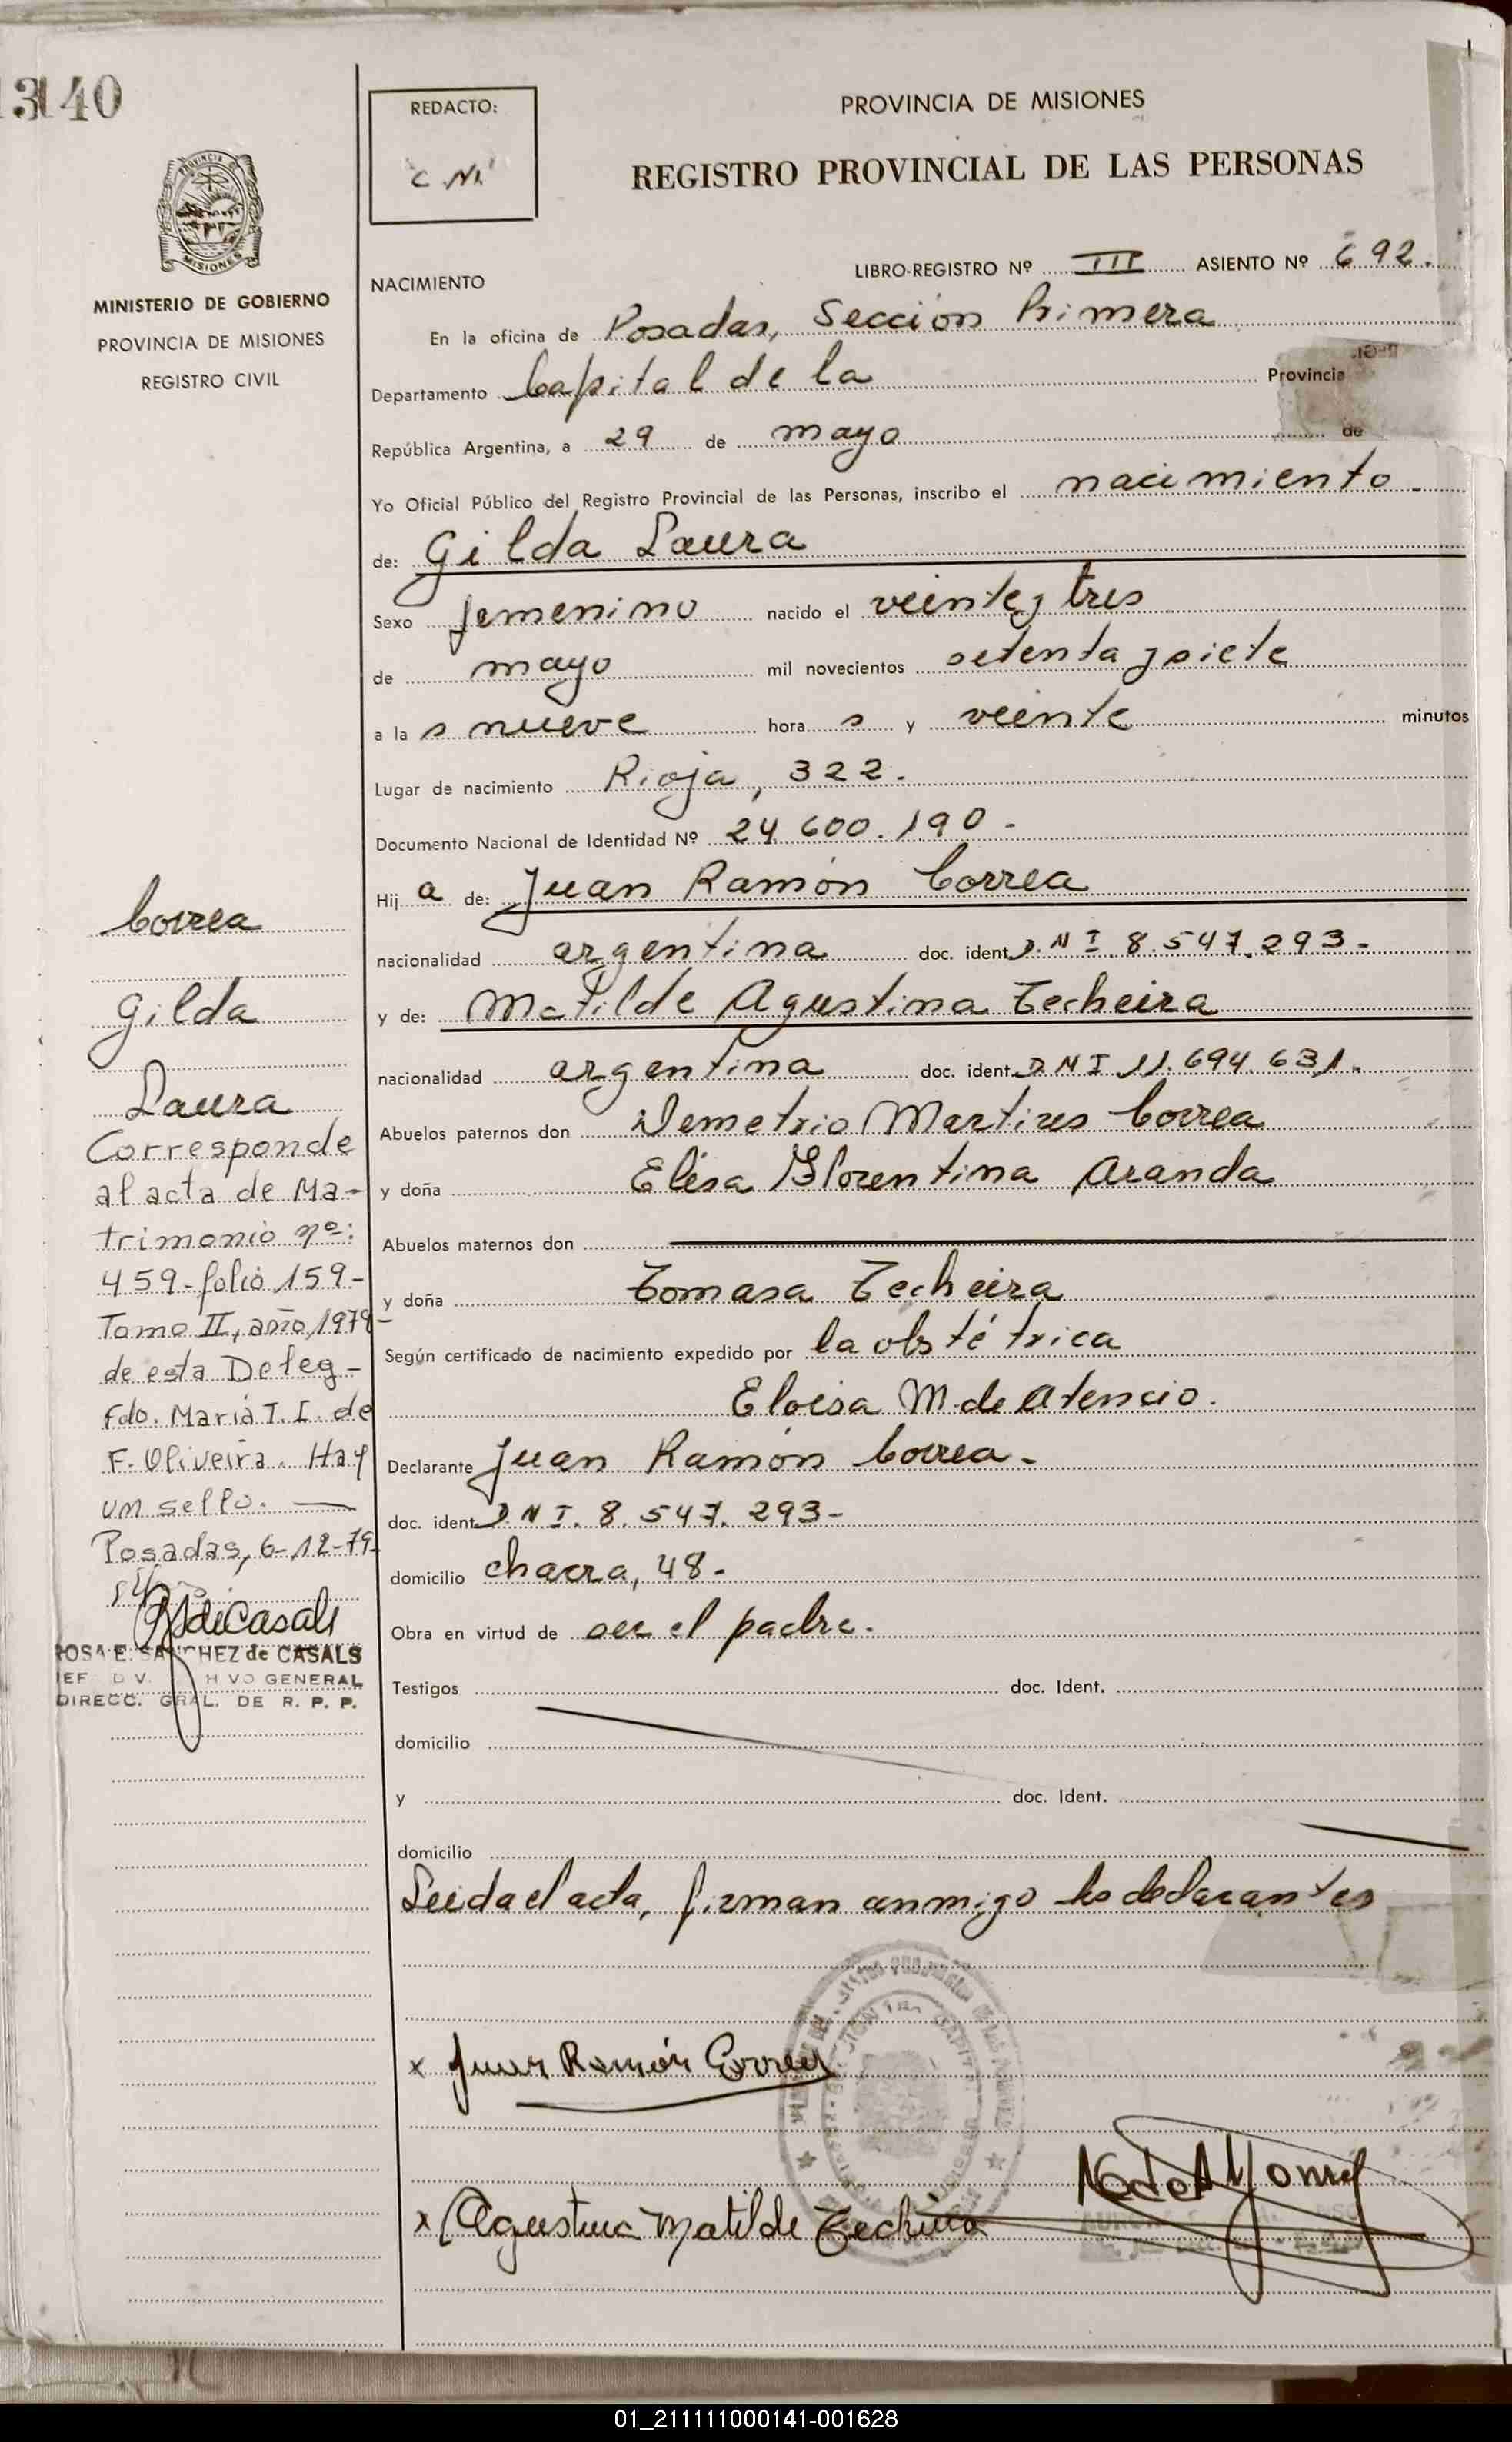 3140
REDACTO:
C.N.
PROVINCIA DE MISIONES
REGISTRO PROVINCIAL DE LAS PERSONAS
PROVINCIA DE
MISIONES
MINISTERIO DE GOBIERNO
PROVINCIA DE MISIONES
REGISTRO CIVIL
NACIMIENTO
LIBRO-REGISTRO Nº III ASIENTO Nº 692.
En la oficina de Posadas, Sección Primera
Departamento Capital de la Provincia
República Argentina, a 29 de mayo de
Yo Oficial Público del Registro Provincial de las Personas, inscribo el nacimiento.
de: Gilda Laura
Sexo femenino nacido el veinte y tres
de mayo mil novecientos setenta y siete
a la s nueve hora s y veinte minutos
Lugar de nacimiento Rioja, 322.
Documento Nacional de Identidad Nº 24.600.190.-
Hij a de: Juan Ramón Correa
nacionalidad argentina doc. ident. D.N.I. 8.547.293-
y de: Matilde Agustina Techeira
nacionalidad argentina doc. ident. D N I 11.694.631.
Abuelos paternos don Demetrio Martires Correa
y doña Elisa Florentina Aranda
Abuelos maternos don
y doña Tomasa Techeira
Según certificado de nacimiento expedido por la obstétrica
Eloisa M. de Atencio.
Declarante Juan Ramón Correa-
doc. ident. D N I. 8.547.293-
domicilio chacra, 48-
Obra en virtud de ser el padre.
Testigos doc. Ident.
domicilio
y doc. Ident.
domicilio
Leida el acta, firman conmigo los declarantes
x Juan Ramón Correa
x Agustina Matilde Techeira
Correa
Gilda
Laura
Corresponde
al acta de Ma-
trimonio nº:
459-folio 159-
Tomo II, año 1979-
de esta Deleg-
Fdo. Maria T. I. de
F. Oliveira. Hay
un sello.
Posadas, 6-12-79-
RSdeCasals
ROSA E. SANCHEZ de CASALS
DIRECC. GRAL. DE R. P. P.
01_211111000141-001628